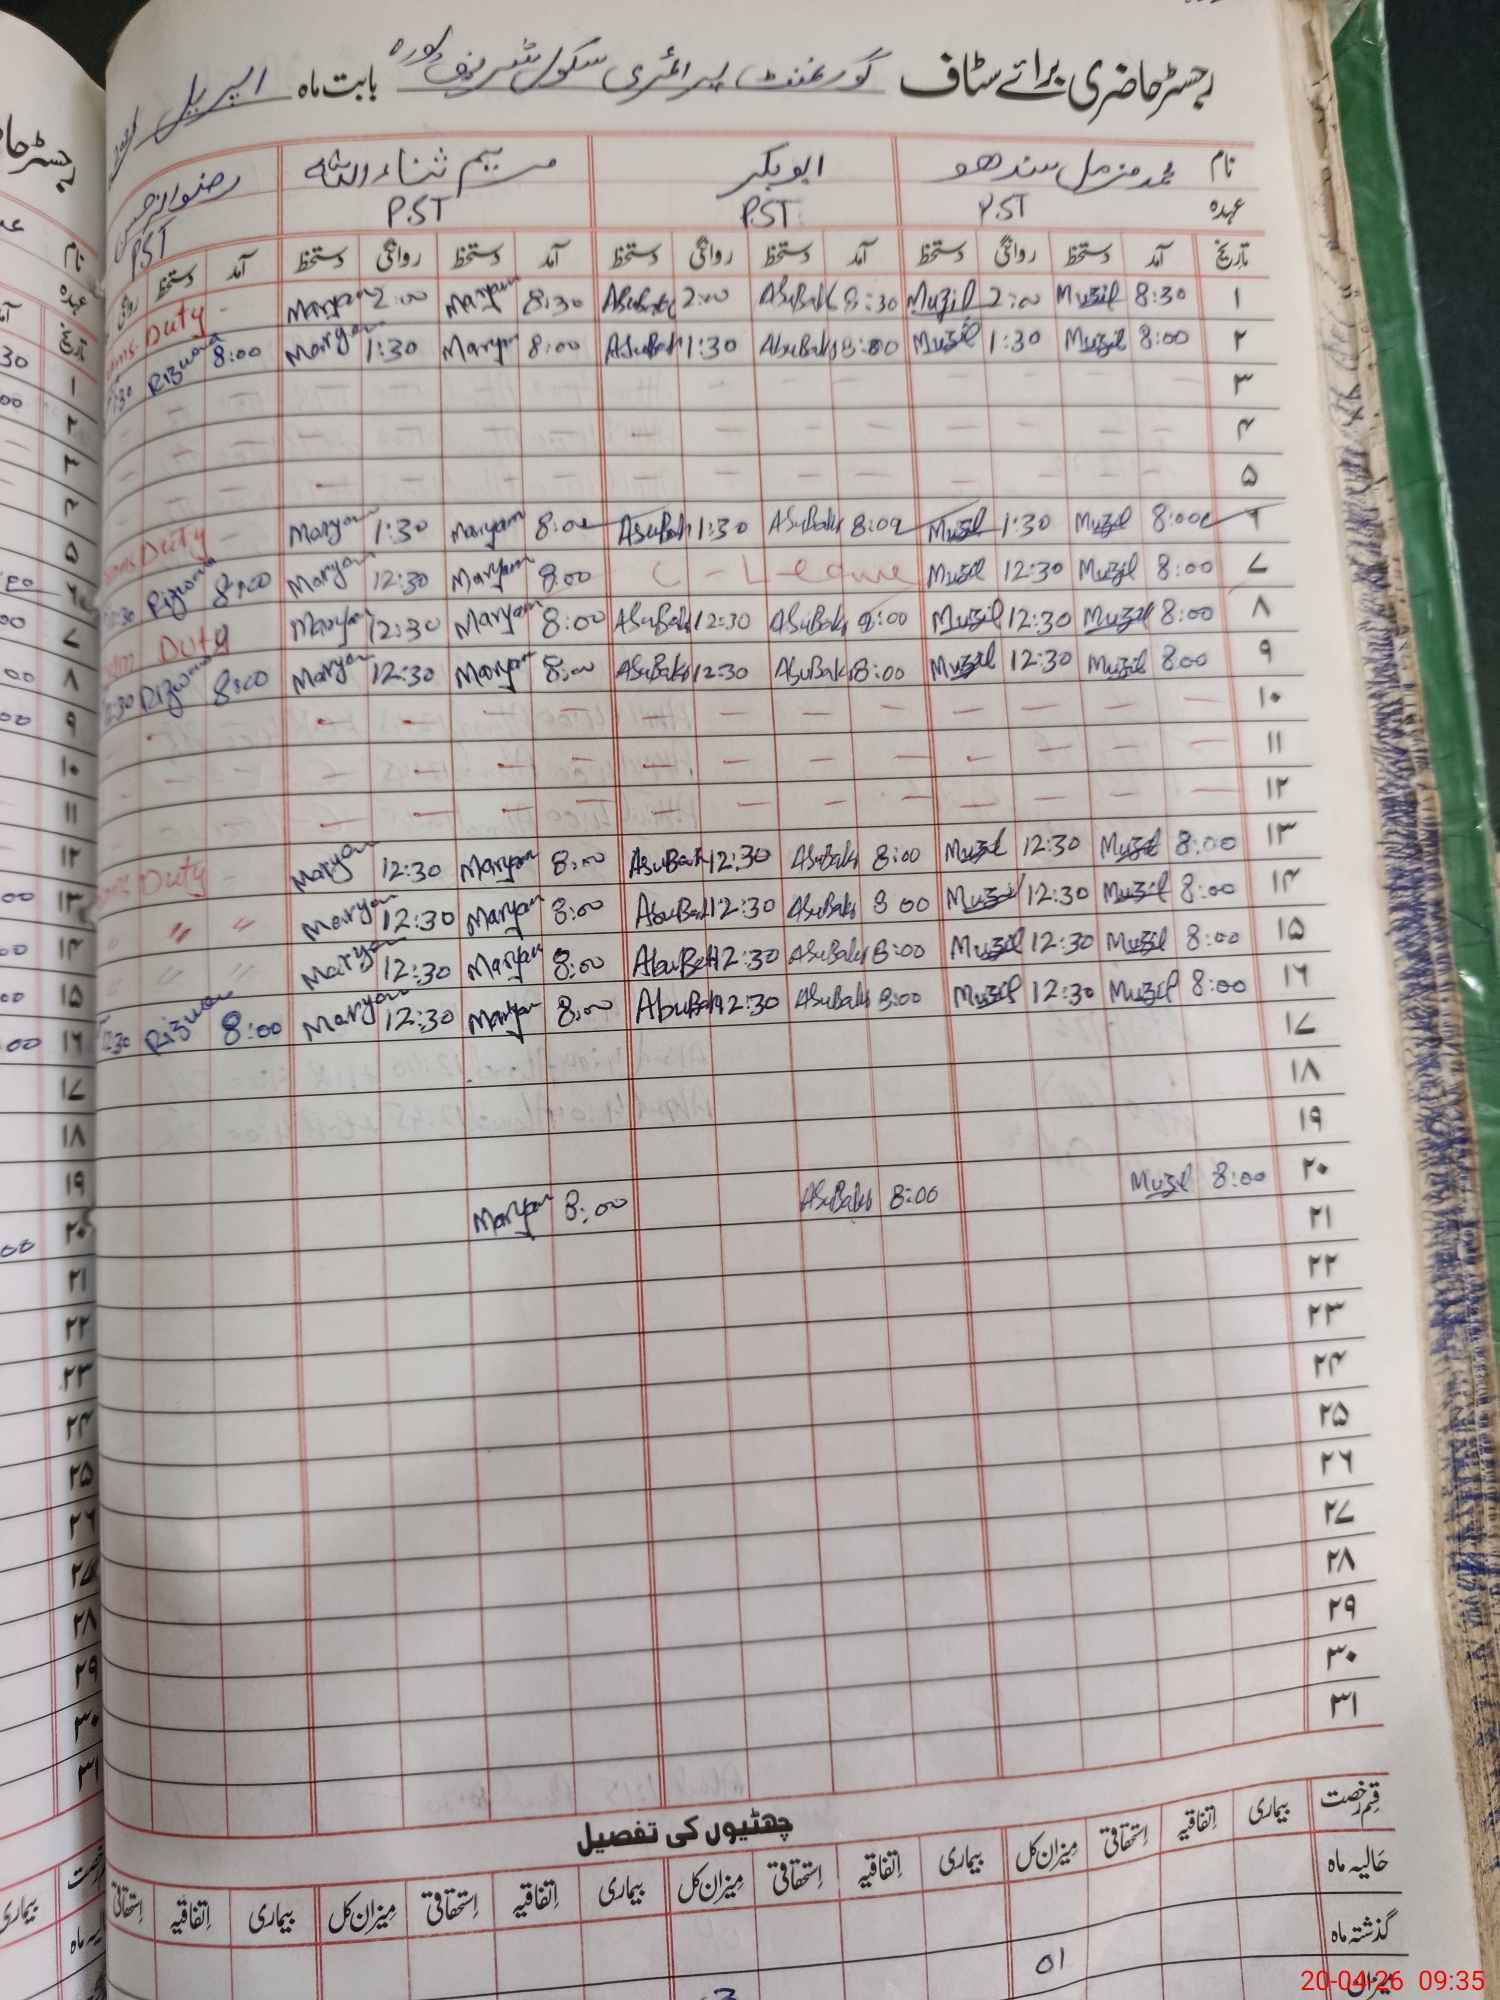 رجسٹر حاضری برائے سٹاف گورنمنٹ پرائمری سکول شریف پورہ بابت ماہ اپریل
نام محمد مزمل سندھو ابوبکر مریم ثناء اللہ رضوان حسن
عہدہ P.ST P.ST P.ST P.ST
تاریخ آمد دستخط روانگی دستخط آمد دستخط روانگی دستخط آمد دستخط روانگی دستخط آمد دستخط روانگی
۱ 8:30 Muzil 2:00 Muzil 8:30 AbuBakr 2:00 AbuBakr 8:30 Maryam 2:00 Maryam - Duty
۲ 8:00 Muzil 1:30 Muzil 8:00 AbuBakr 1:30 AbuBakr 8:00 Maryam 1:30 Maryam 8:00 Rizwan 1:30
۳
۴
۵
۶ 8:00 Muzil 1:30 Muzil 8:00 AbuBakr 1:30 AbuBakr 8:00 Maryam 1:30 Maryam - Duty
۷ 8:00 Muzil 12:30 Muzil C-Leave 8:00 Maryam 12:30 Maryam 8:00 Rizwan 12:30
۸ 8:00 Muzil 12:30 Muzil 8:00 AbuBakr 12:30 AbuBakr 8:00 Maryam 12:30 Maryam Duty
۹ 8:00 Muzil 12:30 Muzil 8:00 AbuBakr 12:30 AbuBakr 8:00 Maryam 12:30 Maryam 8:00 Rizwan 12:30
۱۰
۱۱
۱۲
۱۳ 8:00 Muzil 12:30 Muzil 8:00 AbuBakr 12:30 AbuBakr 8:00 Maryam 12:30 Maryam - Duty
۱۴ 8:00 Muzil 12:30 Muzil 8:00 AbuBakr 12:30 AbuBakr 8:00 Maryam 12:30 Maryam " "
۱۵ 8:00 Muzil 12:30 Muzil 8:00 AbuBakr 12:30 AbuBakr 8:00 Maryam 12:30 Maryam " "
۱۶ 8:00 Muzil 12:30 Muzil 8:00 AbuBakr 12:30 AbuBakr 8:00 Maryam 12:30 Maryam 8:00 Rizwan 12:30
۱۷
۱۸
۱۹
۲۰ 8:00 Muzil 8:00 AbuBakr 8:00 Maryam
۲۱
۲۲
۲۳
۲۴
۲۵
۲۶
۲۷
۲۸
۲۹
۳۰
۳۱
چھٹیوں کی تفصیل
قسم رخصت بیماری اتفاقیہ استحقاقی میزان کل بیماری اتفاقیہ استحقاقی میزان کل بیماری اتفاقیہ استحقاقی میزان کل بیماری اتفاقیہ استحقاقی
حالیہ ماہ
گذشتہ ماہ 01
میزان
20-04-26 09:35